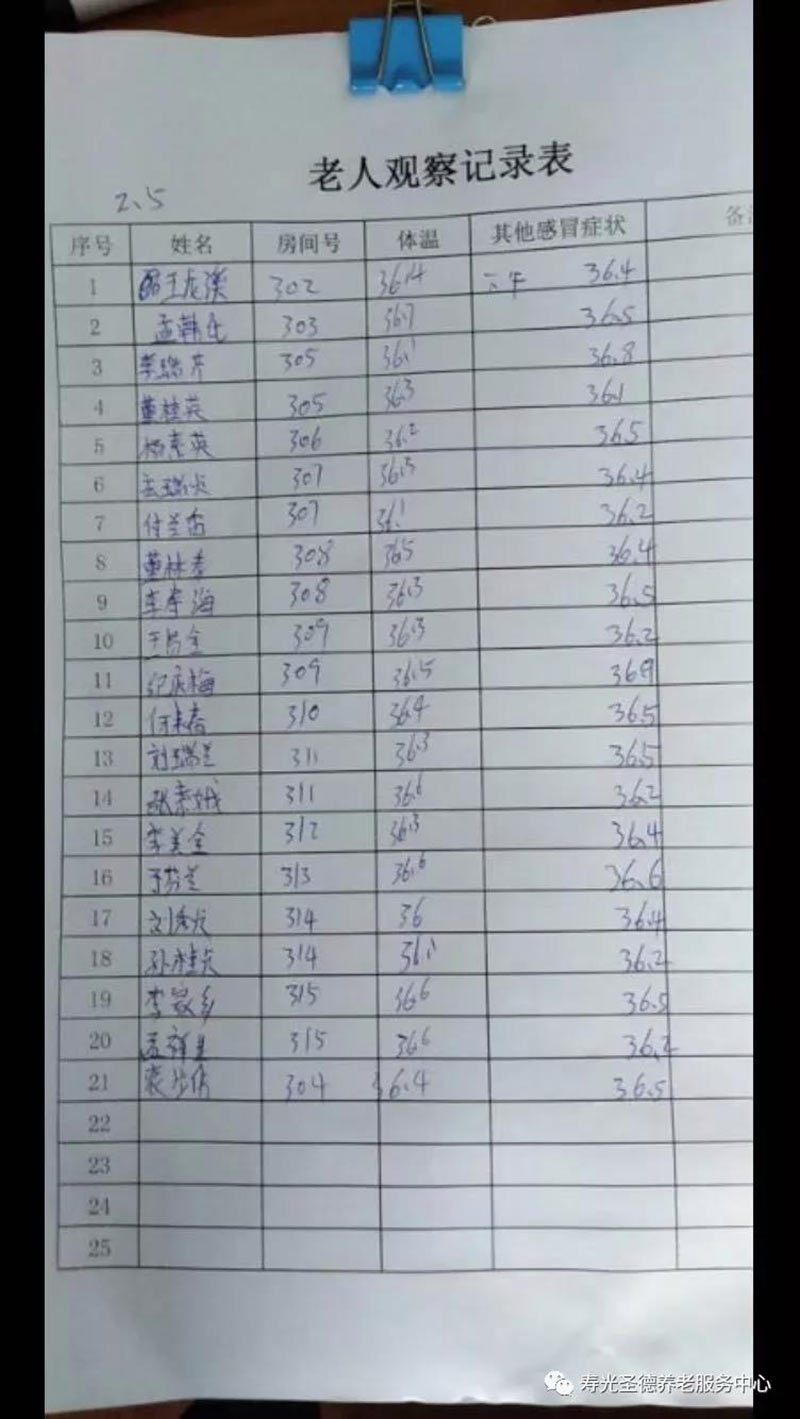 老人观察记录表
2.5
序号 姓名 房间号 体温 其他感冒症状
1 王龙溪 302 36.4 下午 36.4
2 孟韩 303 36.7 36.5
3 李瑞芹 305 36.1 36.8
4 董桂英 305 36.3 36.1
5 杨 英 306 36.2 36.5
6 瑞 307 36.3 36.4
7 付兰香 307 36.1 36.2
8 董林 308 365 36.4
9 李 海 308 36.3 36.5
10 309 36.3 36.2
11 纪庆梅 309 36.5 369
12 何 春 310 36.4 36.5
13 刘瑞兰 311 36.3 36.5
14 张 娥 311 36.6 36.2
15 李美全 312 36.3 36.4
16 于芬兰 313 36.6 36.6
17 刘秀 314 36 36.4
18 孙桂贞 314 36.1 36.2
19 李家乡 315 36.6 36.5
20 孟祥 315 36.6 36.2
21 304 36.4 36.5
22
23
24
25
寿光圣德养老服务中心